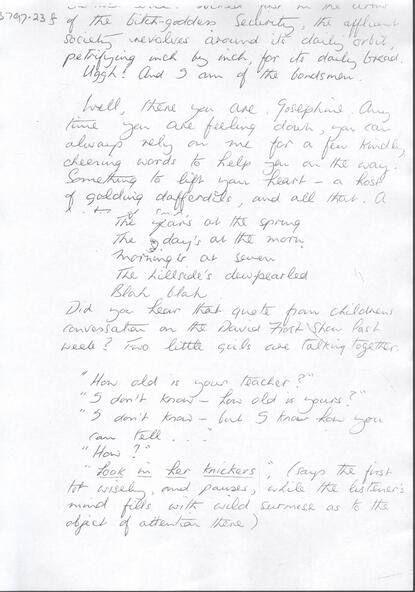 3797.23f
of the bitch-goddess Security, the affluent
society revolves around its daily orbit,
petrifying inch by inch, for its daily bread.
Uggh! And I am of the bondsmen.
Well, there you are, Josephine. Any
time you are feeling down, you can
always rely on me for a few kindly,
cheering words to help you on the way.
Something to lift your heart – a host
of golding dafferdils, and all that. A
The year's at the spring
The day's at the morn
Morning's at seven
The hillside's dewpearled
Blah blah
Did you hear that quote from childrens
conversation on the David Frost Show last
week? Two little girls are talking together.
"How old is your teacher?"
"I don't know – how old is yours?"
"I don't know – but I know how you
can tell . . ."
"How?"
"Look in her knickers", (says the first
tot wisely, and pauses, while the listener's
mind fills with wild surmise as to the
object of attention there)